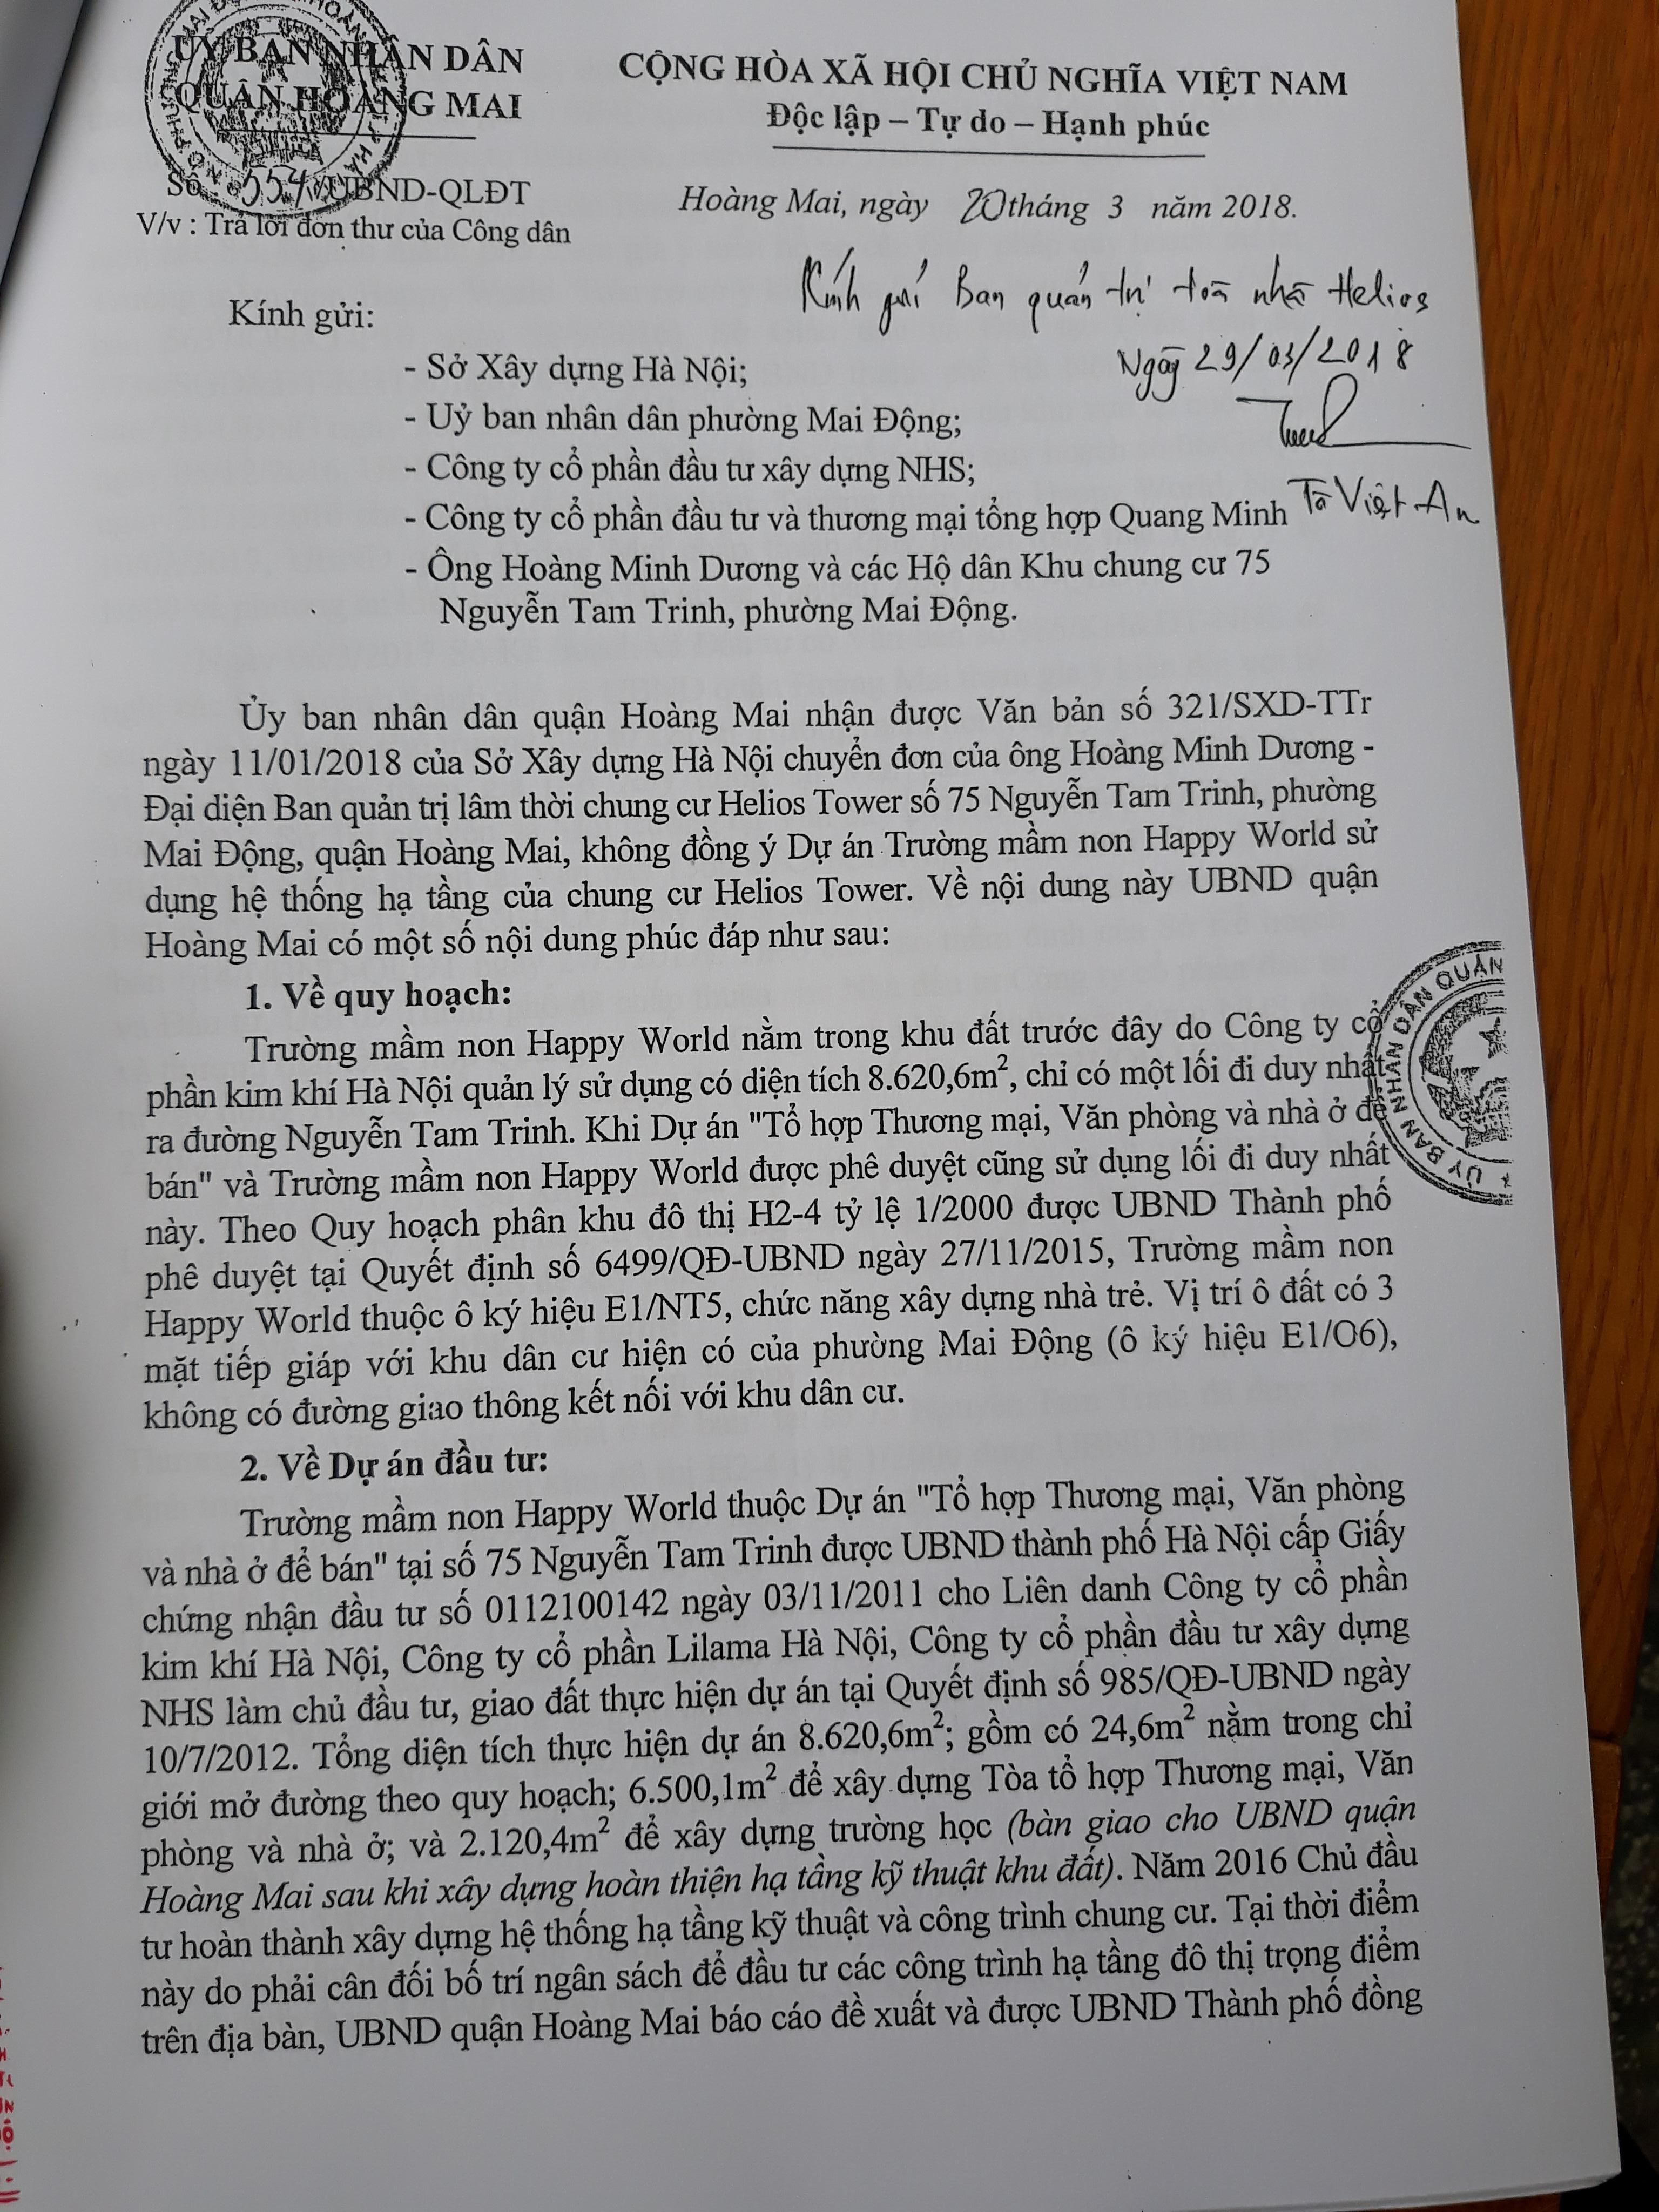 ỦY BAN NHÂN DÂN
QUẬN HOÀNG MAI
CỘNG HÒA XÃ HỘI CHỦ NGHĨA VIỆT NAM
Độc lập – Tự do – Hạnh phúc
Số: 554/UBND-QLĐT
V/v : Trả lời đơn thư của Công dân
Hoàng Mai, ngày 20 tháng 3 năm 2018.
Kính gửi Ban quản trị toà nhà Helios
Ngày 29/03/2018
Tạ Việt An
Kính gửi:
- Sở Xây dựng Hà Nội;
- Uỷ ban nhân dân phường Mai Động;
- Công ty cổ phần đầu tư xây dựng NHS;
- Công ty cổ phần đầu tư và thương mại tổng hợp Quang Minh
- Ông Hoàng Minh Dương và các Hộ dân Khu chung cư 75
Nguyễn Tam Trinh, phường Mai Động.
Ủy ban nhân dân quận Hoàng Mai nhận được Văn bản số 321/SXD-TTr
ngày 11/01/2018 của Sở Xây dựng Hà Nội chuyển đơn của ông Hoàng Minh Dương -
Đại diện Ban quản trị lâm thời chung cư Helios Tower số 75 Nguyễn Tam Trinh, phường
Mai Động, quận Hoàng Mai, không đồng ý Dự án Trường mầm non Happy World sử
dụng hệ thống hạ tầng của chung cư Helios Tower. Về nội dung này UBND quận
Hoàng Mai có một số nội dung phúc đáp như sau:
1. Về quy hoạch:
Trường mầm non Happy World nằm trong khu đất trước đây do Công ty cổ
phần kim khí Hà Nội quản lý sử dụng có diện tích 8.620,6m², chỉ có một lối đi duy nhất
ra đường Nguyễn Tam Trinh. Khi Dự án "Tổ hợp Thương mại, Văn phòng và nhà ở để
bán" và Trường mầm non Happy World được phê duyệt cũng sử dụng lối đi duy nhất
này. Theo Quy hoạch phân khu đô thị H2-4 tỷ lệ 1/2000 được UBND Thành phố
phê duyệt tại Quyết định số 6499/QĐ-UBND ngày 27/11/2015, Trường mầm non
Happy World thuộc ô ký hiệu E1/NT5, chức năng xây dựng nhà trẻ. Vị trí ô đất có 3
mặt tiếp giáp với khu dân cư hiện có của phường Mai Động (ô ký hiệu E1/O6),
không có đường giao thông kết nối với khu dân cư.
2. Về Dự án đầu tư:
Trường mầm non Happy World thuộc Dự án "Tổ hợp Thương mại, Văn phòng
và nhà ở để bán" tại số 75 Nguyễn Tam Trinh được UBND thành phố Hà Nội cấp Giấy
chứng nhận đầu tư số 0112100142 ngày 03/11/2011 cho Liên danh Công ty cổ phần
kim khí Hà Nội, Công ty cổ phần Lilama Hà Nội, Công ty cổ phần đầu tư xây dựng
NHS làm chủ đầu tư, giao đất thực hiện dự án tại Quyết định số 985/QĐ-UBND ngày
10/7/2012. Tổng diện tích thực hiện dự án 8.620,6m²; gồm có 24,6m² nằm trong chỉ
giới mở đường theo quy hoạch; 6.500,1m² để xây dựng Tòa tổ hợp Thương mại, Văn
phòng và nhà ở; và 2.120,4m² để xây dựng trường học (bàn giao cho UBND quận
Hoàng Mai sau khi xây dựng hoàn thiện hạ tầng kỹ thuật khu đất). Năm 2016 Chủ đầu
tư hoàn thành xây dựng hệ thống hạ tầng kỹ thuật và công trình chung cư. Tại thời điểm
này do phải cân đối bố trí ngân sách để đầu tư các công trình hạ tầng đô thị trọng điểm
trên địa bàn, UBND quận Hoàng Mai báo cáo đề xuất và được UBND Thành phố đồng
ỦY BAN NHÂN DÂN QUẬN